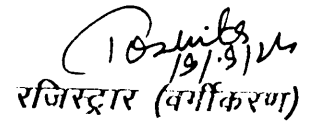 19/9/24
रजिस्ट्रार (वर्गीकरण)